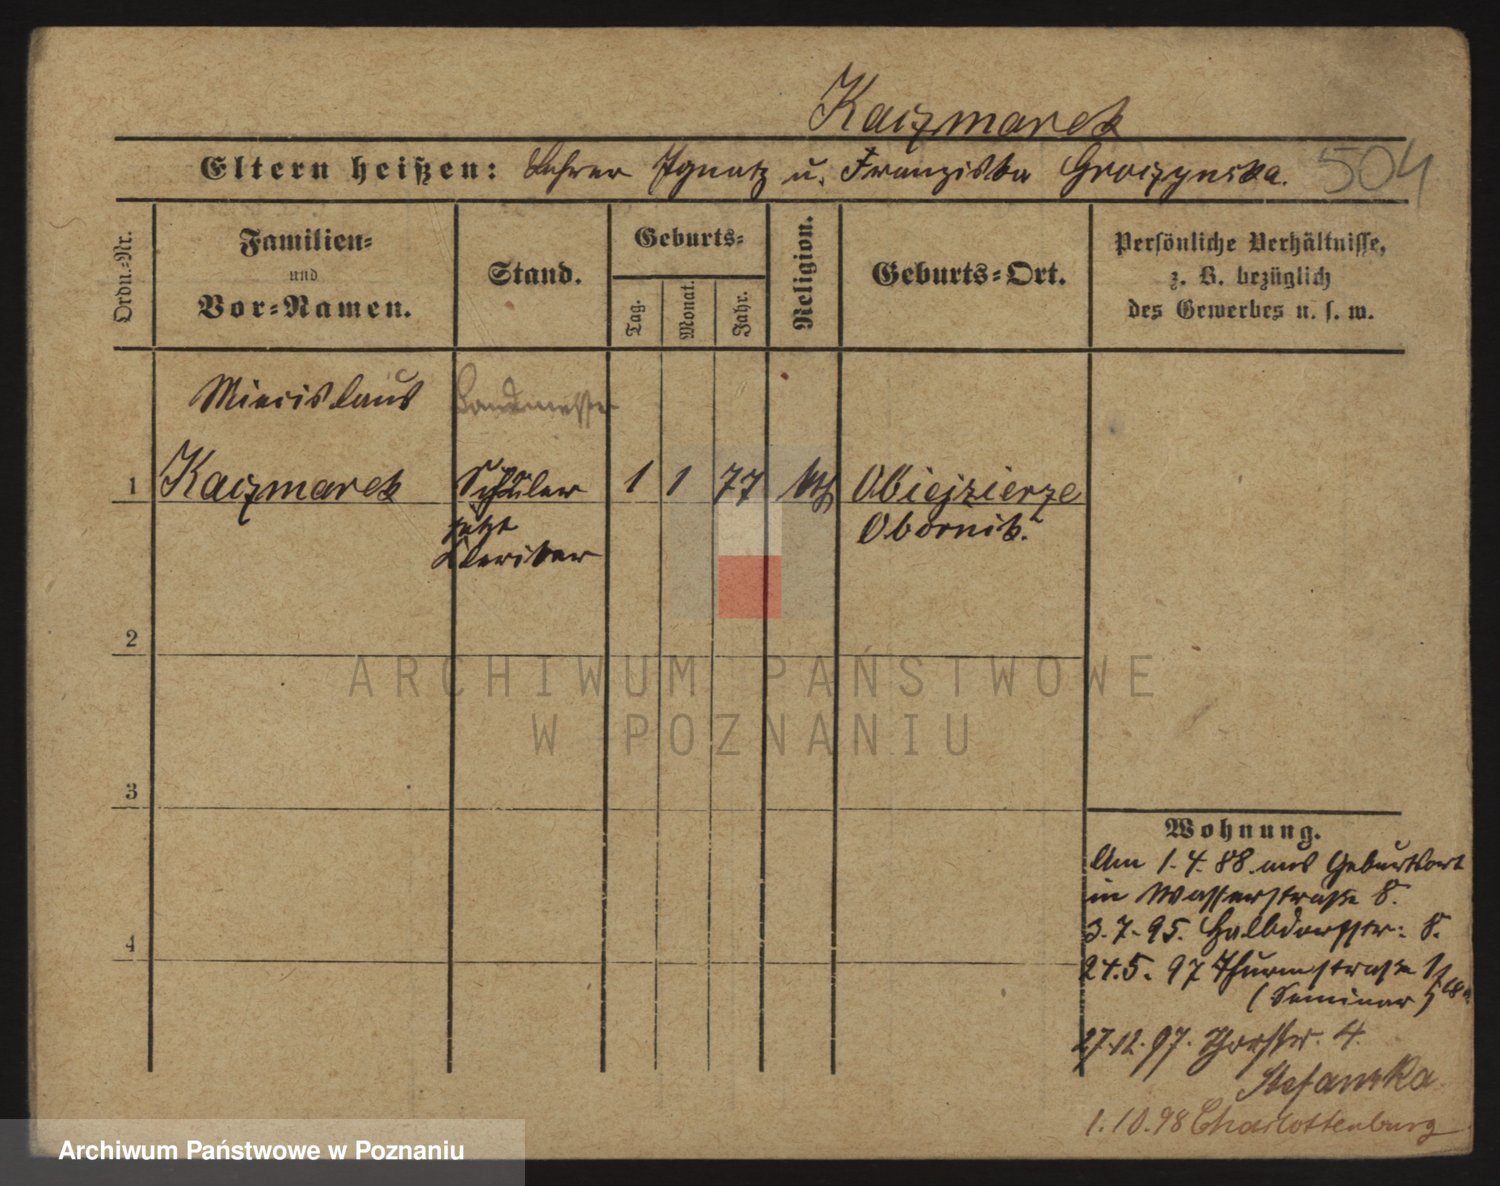 Kaczmarek
Eltern heißen: Lehrer Ignatz u. Franziska Groczynska. 504
Ordn.=Nr.
Familien=
und
Vor=Namen.
Stand.
Geburts=
Tag.
Monat.
Jahr.
Religion.
Geburts=Ort.
Persönliche Verhältnisse,
z. B. bezüglich
des Gewerbes u. s. w.
Miecislaus Landmesser
1 Kaczmarek Schüler 1 1 77 kth Obiejzierze
jetzt Obornik.
Kleriker
2
3
4
Wohnung.
Am 1.4.88. aus Geburtsort
in Wasserstraße 8.
3.7.95. Halbdorfstr: 8.
24.5.97 Thurmstraße
(Seminar)
27.12.97. 4.
Stefanska
1.10.98 Charlottenburg
ARCHIWUM PAŃSTWOWE
W POZNANIU
Archiwum Państwowe w Poznaniu